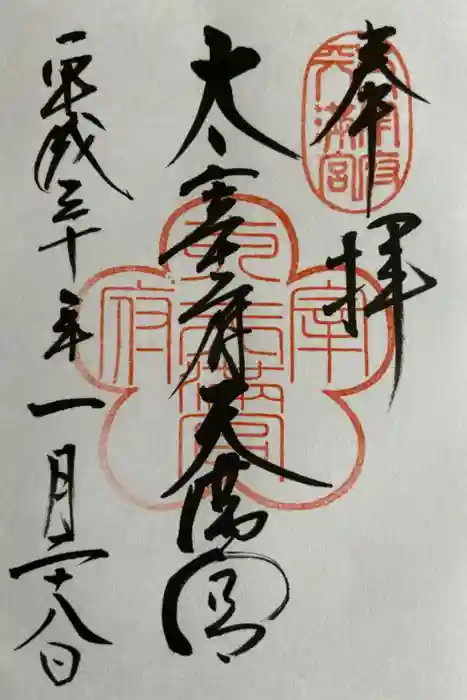 奉拝
太宰府天満宮
平成三十年一月二十八日